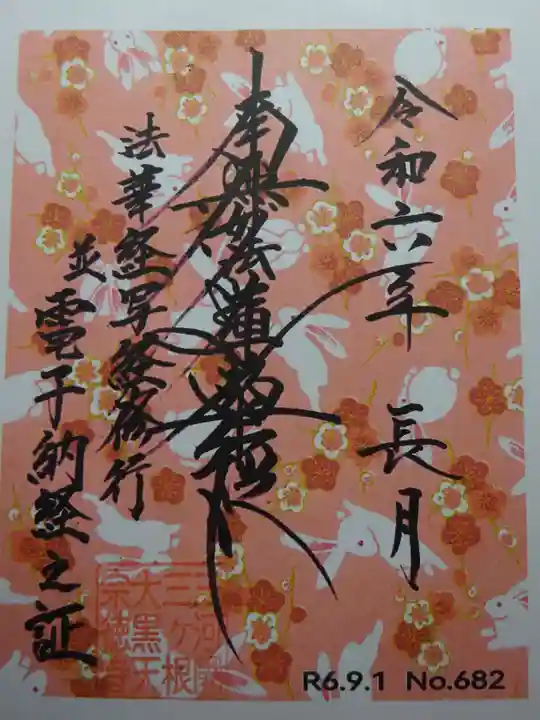 令和六年 長月
南無妙法蓮華経
法華経写経修行
並 電子納経之証
三河国
大黒天
R6.9.1 No.682